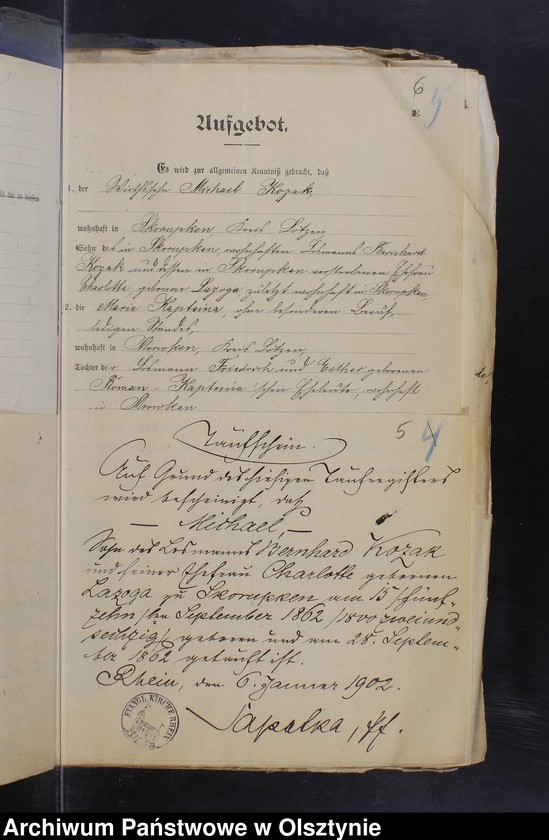 6
E
5
Aufgebot.
Es wird zur allgemeinen Kenntniß gebracht, daß
1. der Wirthssohn Michael Kozak,
wohnhaft in Skorupken, Kreis Lötzen,
Sohn des in Skorupken, wohnhaften Losmanns Bernhard
Kozak und dessen in Skorupken verstorbenen Ehefrau
Charlotte, geborenen Lazoga, zuletzt wohnhaft in Skorupken,
2. die Marie Kapteina, ohne besonderen Beruf,
ledigen Standes,
wohnhaft in Mrowken, Kreis Lötzen,
Tochter der Losmann Friedrich und Esther geborenen
Roman - Kapteina'schen Eheleute, wohnhaft
in Mrowken
5 4
Taufschein.
Auf Grund des hiesigen Taufregisters
wird bescheinigt, daß
— Michael, —
Sohn des Losmanns Bernhard Kozak
und seiner Ehefrau Charlotte geborenen
Lazoga zu Skorupken am 15/fünf-
zehn/ten September 1862 /1800 zweiund-
sechzig/ geboren und am 28. Septem-
ber 1862 getauft ist.
Rhein, den 6. Januar 1902.
EVANGL. KIRCHE RHEIN
Sapatka, Pf.
Archiwum Państwowe w Olsztynie